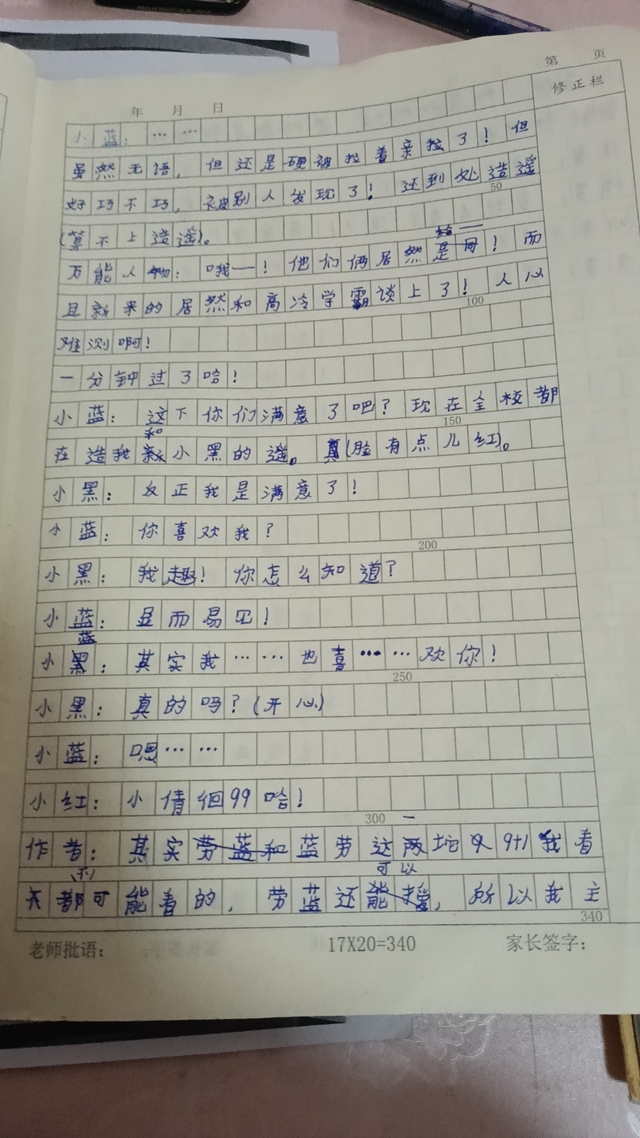 第 页
年 月 日
修正栏
小蓝：……
虽然无语，但还是硬被拉着亲拉了！但
好巧不巧，被别人发现了！还到处造遥
50
(算不上造遥)。
万能人物：哦一！他们俩居然是同！而
且新来的居然和高冷学霸谈上了！人心
100
难测啊！
一分钟过了哈！
小蓝：这下你们满意了吧？现在全校都
150
在造我和小黑的遥。(脸有点儿红)。
小黑：反正我是满意了！
小蓝：你喜欢我？
200
小黑：我趣！你怎么知道？
小蓝：显而易见！
小蓝：其实我……也喜……欢你！
250
小黑：真的吗？(开心)
小蓝：嗯……
小红：小情侣99哈！
300
作者：其实蓝劳这两坨 9+1我看
都不可能看的，劳蓝还可以，所以我主
340
老师批语：
17X20=340
家长签字：